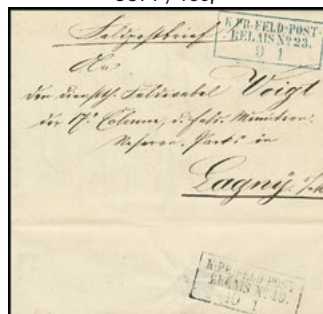 Feldpostbrief
K.PR.FELD-POST-
RELAIS No 23.
9 1
An
den Feldwebel Voigt
der 17. Colonne, d.
Reserve Parks in
Lagny
K.PR.FELD-POST-
RELAIS No 19.
10 1